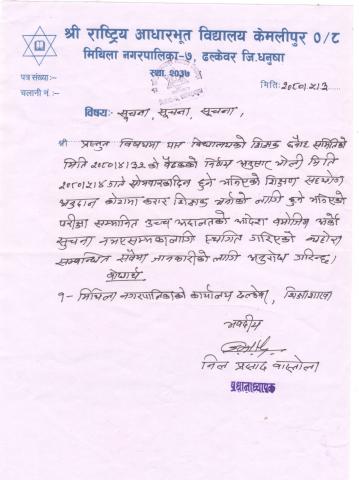 श्री राष्ट्रिय आधारभूत विद्यालय केमलीपुर ०/८
मिथिला नगरपालिका-७, ढल्केवर जि.धनुषा
स्था. २०३७
पत्र संख्याः-
मितिः २०८०/५/३
चलानी नंः-
विषयः सूचना, सूचना, सूचना,
श्री प्रस्तुत विषयमा यस विद्यालयको शिक्षक छनौट समितिको
मिति २०८०/४/३२ को बैठकको निर्णय अनुसार भोली मिति
२०८०/५/४ गते सोमबारकादिन हुने भनिएको शिक्षण सहयोग
अनुदान कोटामा करार शिक्षक भर्नाको लागि हुने भनिएको
परीक्षा सम्मानित उच्च अदालतको आदेश बमोजिम अर्को
सूचना नभएसम्मकालागि स्थगित गरिएको व्यहोरा
सम्बन्धित सबैमा जानकारीको लागि अनुरोध गरिन्छ।
बोधार्थ
१- मिथिला नगरपालिकाको कार्यालय ढल्केवर, शिक्षा शाखा
भवदीय
निल प्रसाद वास्तोला
प्रधानाध्यापक